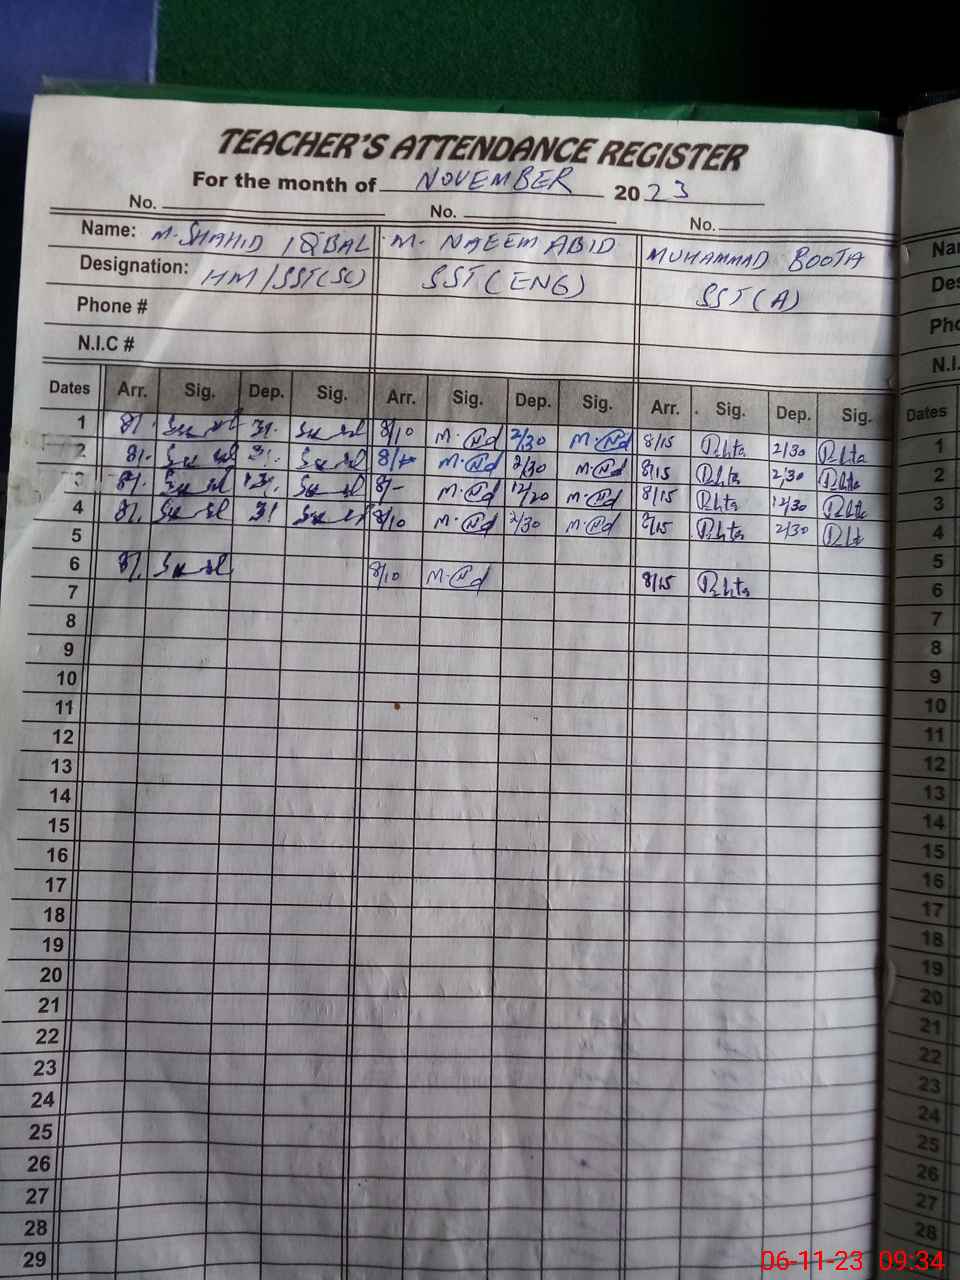 TEACHER'S ATTENDANCE REGISTER
For the month of NOVEMBER 2023
No. No. No.
Name: M. SHAHID IQBAL M. NAEEM ABID MUHAMMAD BOOTA Nar
Designation: HM/SST(SC) SST(ENG) SST(A) Des
Phone # Pho
N.I.C # N.I.
Dates Arr. Sig. Dep. Sig. Arr. Sig. Dep. Sig. Arr. Sig. Dep. Sig. Dates
1 8/. 3/. 8/10 2/30 8/15 2/30 1
2 8/. 3/. 2/30 8/15 2/30 2
3 8/. 8/- 8/15 12/30 3
4 8/. 3/ 8/10 2/30 8/15 2/30 4
5 5
6 8/. 8/10 8/15 6
7 7
8 8
9 9
10 10
11 11
12 12
13 13
14 14
15 15
16 16
17 17
18 18
19 19
20 20
21 21
22 22
23 23
24 24
25 25
26 26
27 27
28 28
29
06-11-23 09:34